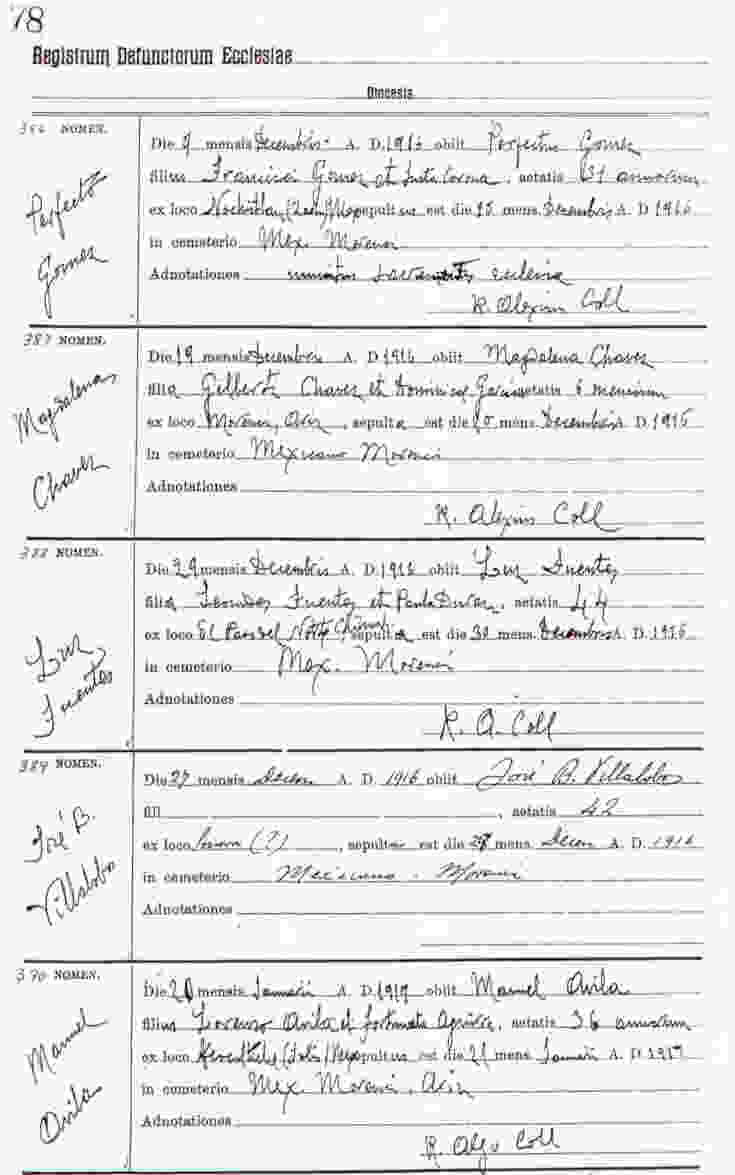 78
Registrum Defunctorum Ecclesiae
Diocesis
386 NOMEN.
Perfecto
Gomez
Die 9 mensis Decembris A. D. 1916 obiit Perfectus Gomez
filius Francisci Gomez et Justa, aetatis 51 annorum
ex loco sepultus est die 25 mens. Decembris A. D 1916
in cemeterio Mex. Morenci
Adnotationes
R. Alexius Coll
387 NOMEN.
Magdalena
Chavez
Die 19 mensis Decembris A. D 1916 obiit Magdalena Chavez
filia Gilberto Chavez et Dominica Garcia aetatis 6 mensium
ex loco Morenci, Ariz, sepulta est die 20 mens. Decembris A. D. 1916
in cemeterio Mexicano Morenci
Adnotationes
R. Alexius Coll
388 NOMEN.
Luz
Fuentes
Die 29 mensis Decembris A. D. 1916 obiit Luz Fuentes
filia Fuentes et Paula Duran, aetatis 44
ex loco sepulta est die 30 mens. Decembris A. D. 1916
in cemeterio Mex. Morenci
Adnotationes
R. A. Coll
389 NOMEN.
José B.
Villalobo
Die 27 mensis Decem A. D. 1916 obiit José B. Villalobo
fili , aetatis 42
ex loco (?), sepultus est die 28 mens. Decem A. D. 1916
in cemeterio Mexicano - Morenci
Adnotationes
390 NOMEN.
Manuel
Avila
Die 20 mensis Januarii A. D. 1917 obiit Manuel Avila
filius Lorenzo Avila et fortunata Aguirre, aetatis 36 annorum
ex loco sepultus est die 21 mens. Januarii A. D. 1917
in cemeterio Mex. Morenci, Ariz
Adnotationes
R. Coll